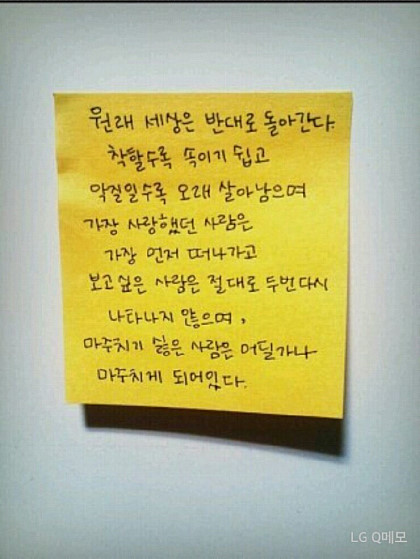 원래 세상은 반대로 돌아간다.
착할수록 속이기 쉽고
악질일수록 오래 살아남으며
가장 사랑했던 사람은
가장 먼저 떠나가고
보고싶은 사람은 절대로 두번다시
나타나지 않으며,
마주치기 싫은 사람은 어딜가나
마주치게 되어있다.
LG Q메모